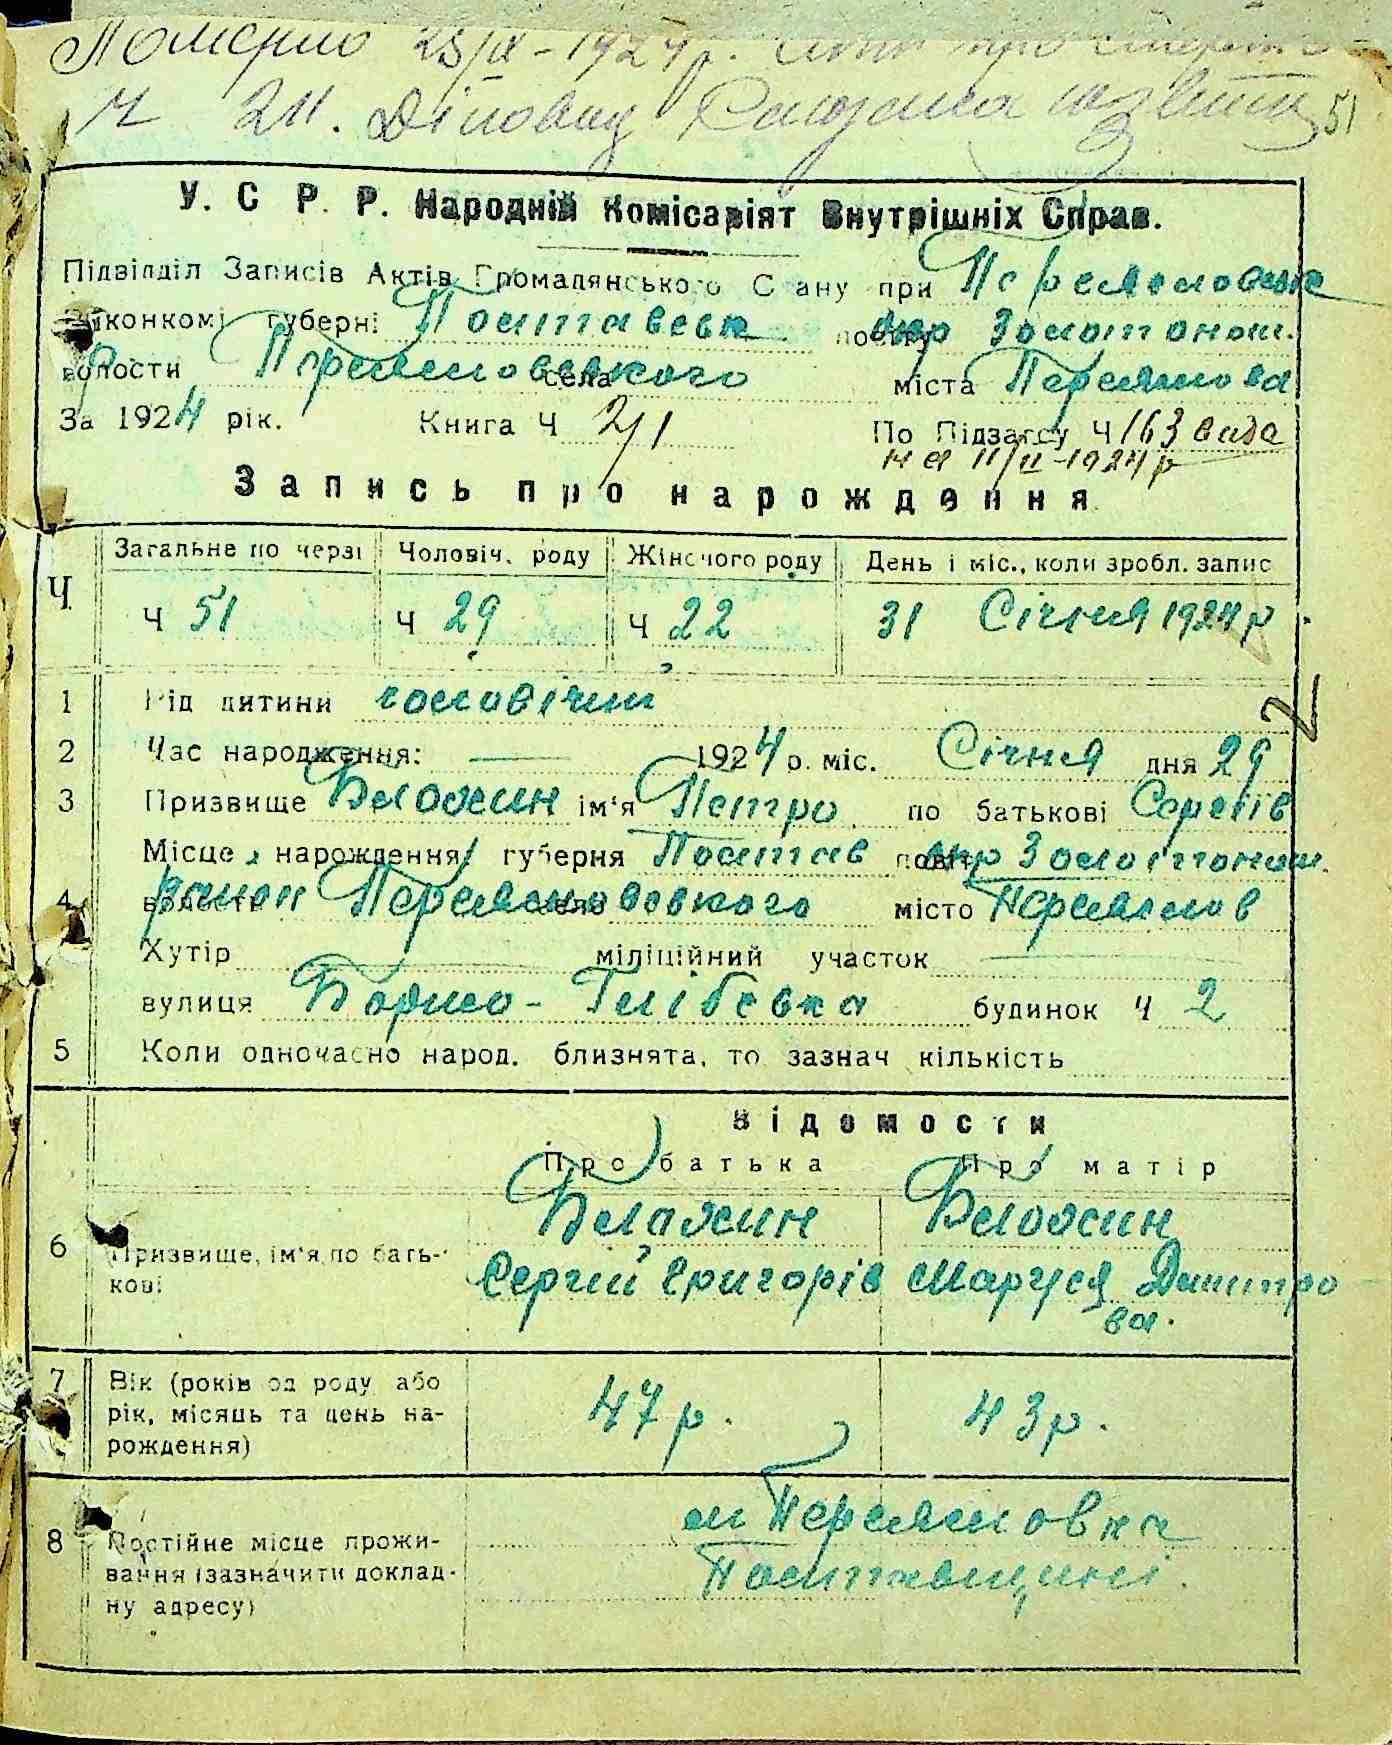 Померло 25/IX-1924р. Акт про смерть
Ч 211. Діловод
51
У. С. Р. Р. Народній Комісаріят Внутрішніх Справ.
Підвідділ Записів Актів Громадянського Стану при Переясловське
Виконкомі губерні Полтавськ повіту окр Золотонош.
волости Переясловського села міста Переяслова
За 1924 рік. Книга Ч 2/1 По Підзагсу Ч 163 вида
на 11/II-1924 р
Запись про нарождення
Ч
Загальне по черзі Чоловіч. роду Жіночого роду День і міс., коли зробл. запис
Ч 51 Ч 29 Ч 22 31 Січня 1924 р.
1 Рід дитини чоловічий
2 Час народження: 1924 р. міс. Січня дня 29
3 Призвище Блажин ім'я Петро по батькові Сергіїв
Місце нарождення губерня Полтав повіт окр Золотонош.
4 волость район Переясловського село місто Переяслов
Хутір міліційний участок
вулиця Борисо-Глібовка будинок Ч 2
5 Коли одночасно народ. близнята, то зазнач кількість
Відомости
Про батька Про матір
Блажин Блажин
6 Призвище, ім'я, по бать-
кові
Сергій Григорів Маруся Дмитро
ва.
7 Вік (років од роду або
рік, місяць та день на-
рождення)
47 р. 43 р.
8 Постійне місце прожи-
вання (зазначити доклад-
ну адресу)
м Переясловка
Полтавщині.